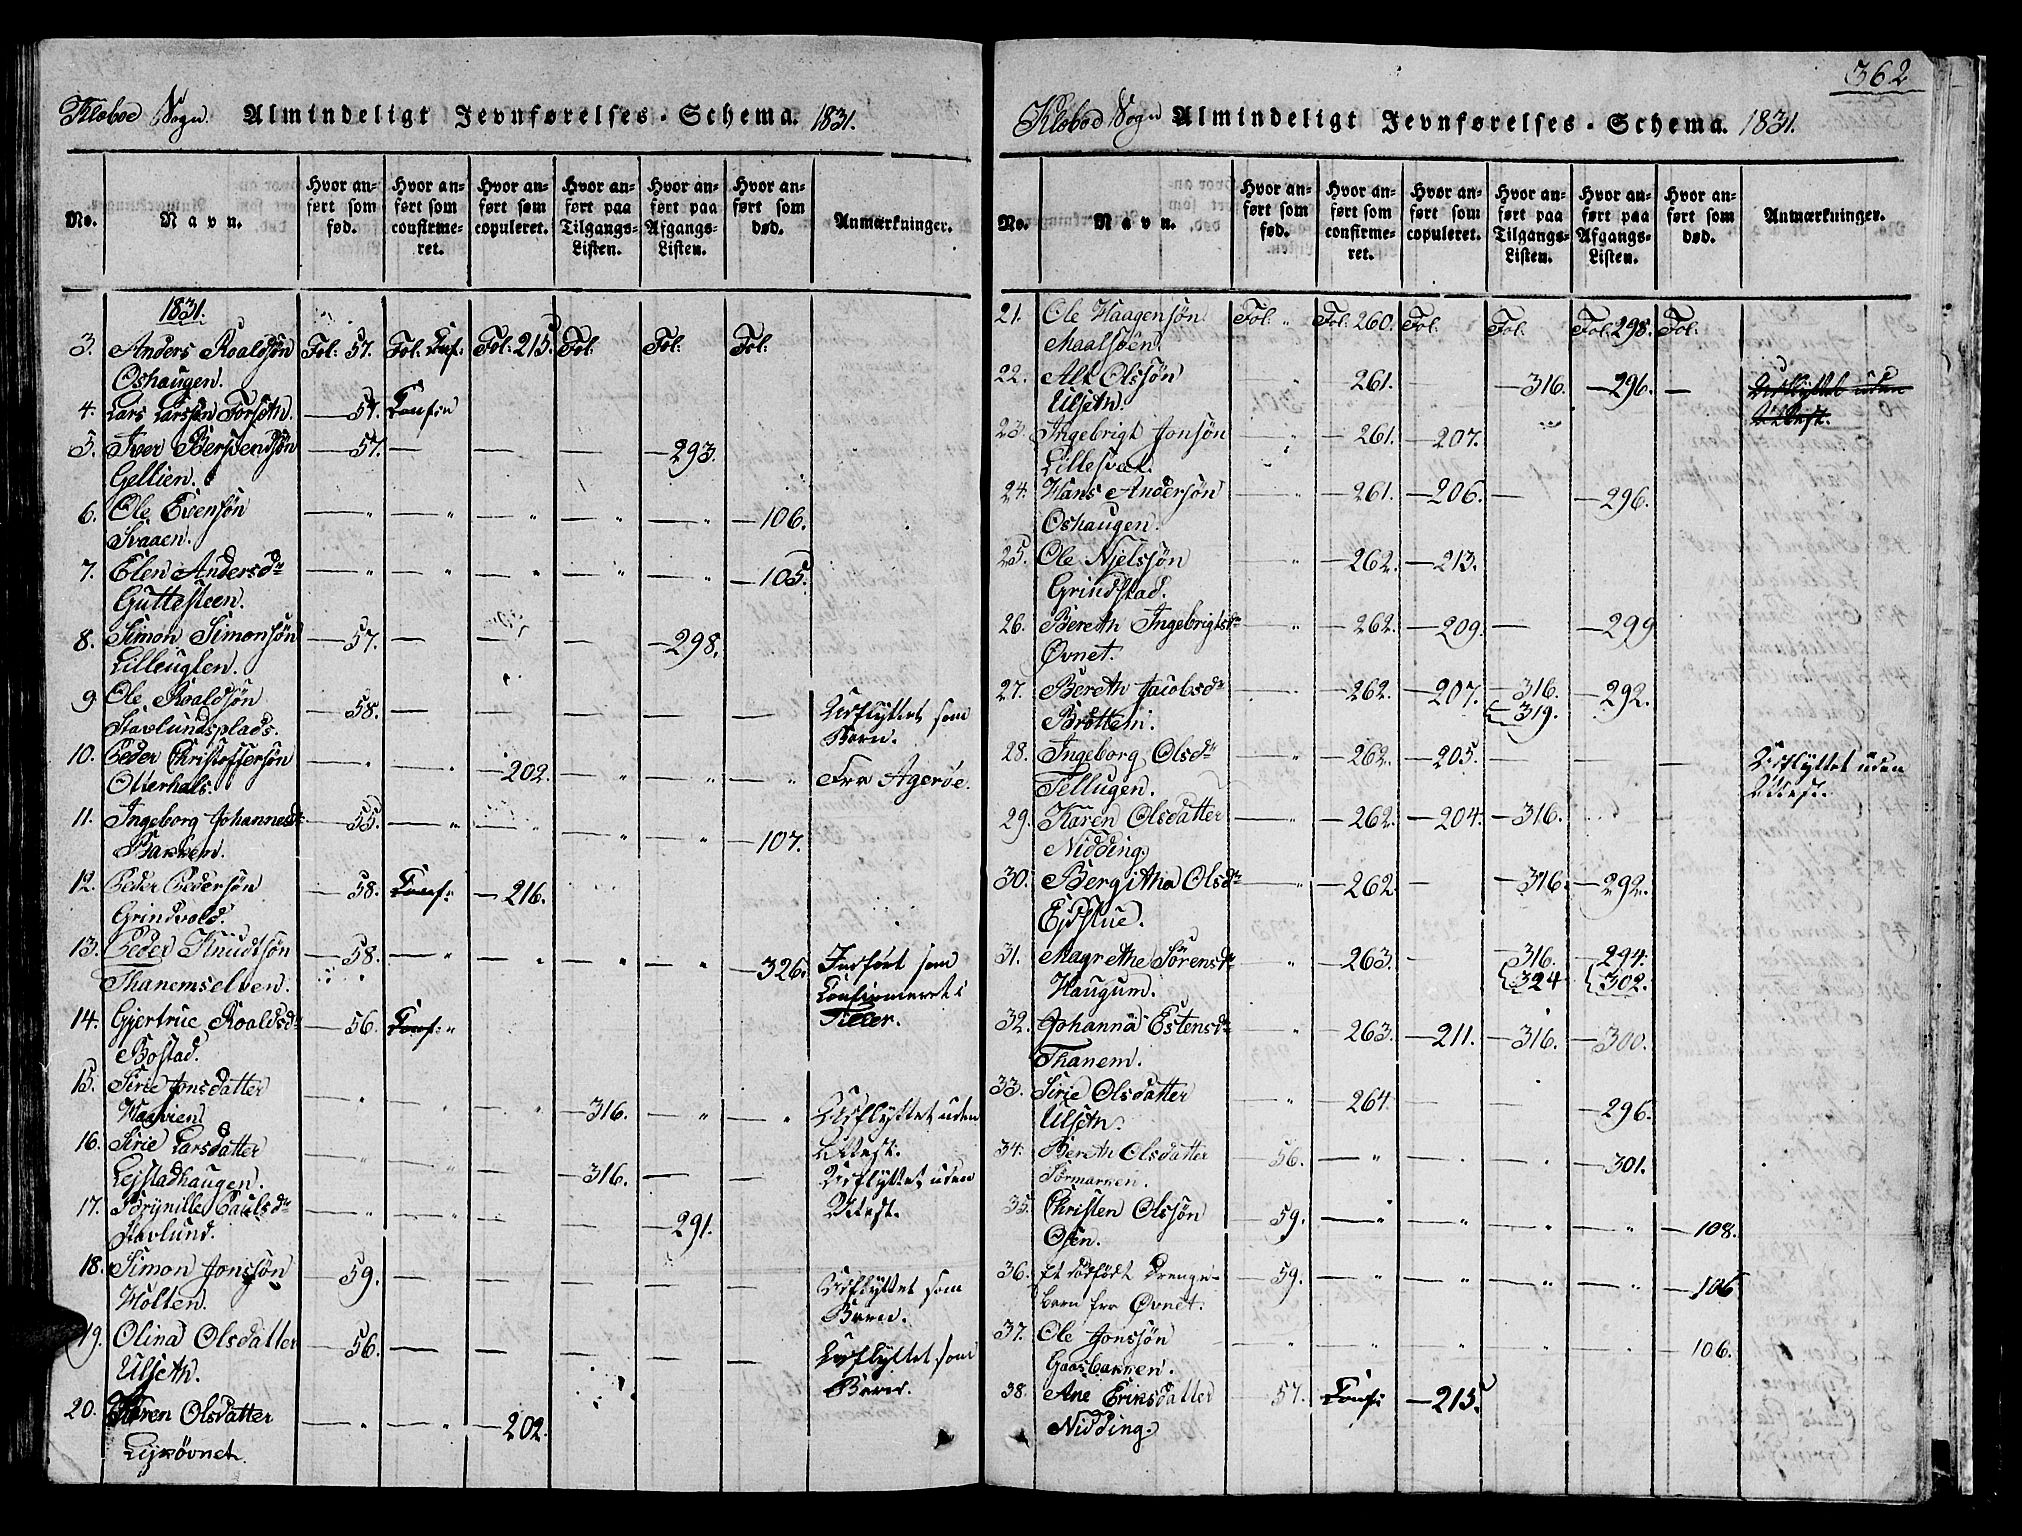 Klæboe Sogn. Almindeligt Jevnførelses-Schema. 1831.
No. Navn. Hvor anført som fød. Hvor anført som confirmeret. Hvor anført som copuleret. Hvor anført paa Tilgangs-Listen. Hvor anført paa Afgangs-Listen. Hvor anført som død. Anmærkninger.
1831.
3. Anders Roaldsøn Fol: 57. Fol. Conf. Fol. 215. Fol. Fol. Fol.
Oshaugen.
4. Lars Larssøn Forseth. — 57. Conf:
5. Iver Bersvendsøn — 57. — — — — 293.
Gellien.
6. Ole Evensøn — " — " — " — " — " — 106.
Svaaen.
7. Elen Andersdr — " — " — " — " — " — 105.
Guttesteen.
8. Simon Simonsøn — 57. — — — — 298.
Lilleuglen.
9. Ole Roaldsøn — 58. — — — — — Udflyttet som
Stavlundsplads. Barn.
10. Peder Christoffersøn — " — " — 202. — " — " — " Fra Agerøe.
Otterhals.
11. Ingeborg Johannesdr — 55. — " — " — " — " — 107.
Bakken.
12. Peder Pedersøn — 58. Conf: — 216.
Grindvold.
13. Peder Knudtsøn — 58. — " — " — " — " — 326. Indført som
Thanemselven. Confirmeret i
14. Gjertrue Roaldsdr — 56. Conf: " Tiller.
Bostad.
15. Sirie Jonsdatter — " — " — " — 316. — " — " Udflyttet uden
Haavien. Attest.
16. Sirie Larsdatter — " — " — — 316. — — Udflyttet uden
Lejstadhaugen. Attest.
17. Brynille Paulsdr — " — " — — — 291.
Stavlund.
18. Simon Jonssøn — 59. — — — — — Udflyttet som
Holten. Barn.
19. Olina Olsdatter — 56. — — — — — Udflyttet som
Ulseth. Barn.
20. Karen Olsdatter — " — " — 202.
Lejrøvnet.
362
Klæboe Sogn Almindeligt Jevnførelses-Schema. 1831.
No. Navn. Hvor anført som fød. Hvor anført som confirmeret. Hvor anført som copuleret. Hvor anført paa Tilgangs-Listen. Hvor anført paa Afgangs-Listen. Hvor anført som død. Anmærkninger.
21. Ole Haagensøn Fol: " Fol: 260. Fol. Fol. Fol. 298. Fol.
Maalsøen.
22. Alt Olssøn — " — 261. — — 316. — 296. — Udflyttet uden
Ulseth. Attest.
23. Ingebrigt Jonsøn — " — 261. — 207.
Lillesvæe.
24. Hans Andersøn — " — 261. — 206. — — 296.
Oshaugen.
25. Ole Nielssøn " — 262. — 213.
Grindstad.
26. Bereth Ingebrigtsdr " — 262. — 209. — — 299
Øvnet.
27. Bereth Jacobsdr — 262. — 207. — 316. — 292.
Brøttem. 319.
28. Ingeborg Olsdr — " — 262. — 205. — — — Udflyttet uden
Tellugen. Attest.
29. Karen Olsdatter — " — 262. — 204. — 316.
Nidding.
30. Bergitha Olsdr — " — 262. — — 316. — 292.
Ejdstue.
31. Magrethe Sörensdr " — 263. — — 316. — 294.
Haugum. 324 302.
32. Johanna Estensdr " — 263. — 211. — 316. — 300.
Thanem.
33. Sirie Olsdatter — " — 264. — — — 296.
Ulseth.
34. Bereth Olsdatter — 56. — " — " — " — 301.
Sörmarken.
35. Christen Olssøn — 59. — " — " — " — " — 108.
Osen.
36. Et dødfødt Drenge- — 59. — " — " — " — " — 106
barn fra Øvnet.
37. Ole Jonssøn — " — " — " — " — " — 106.
Gaasbakken.
38. Ane Eriksdatter — 57. Conf: — 215.
Nidding.